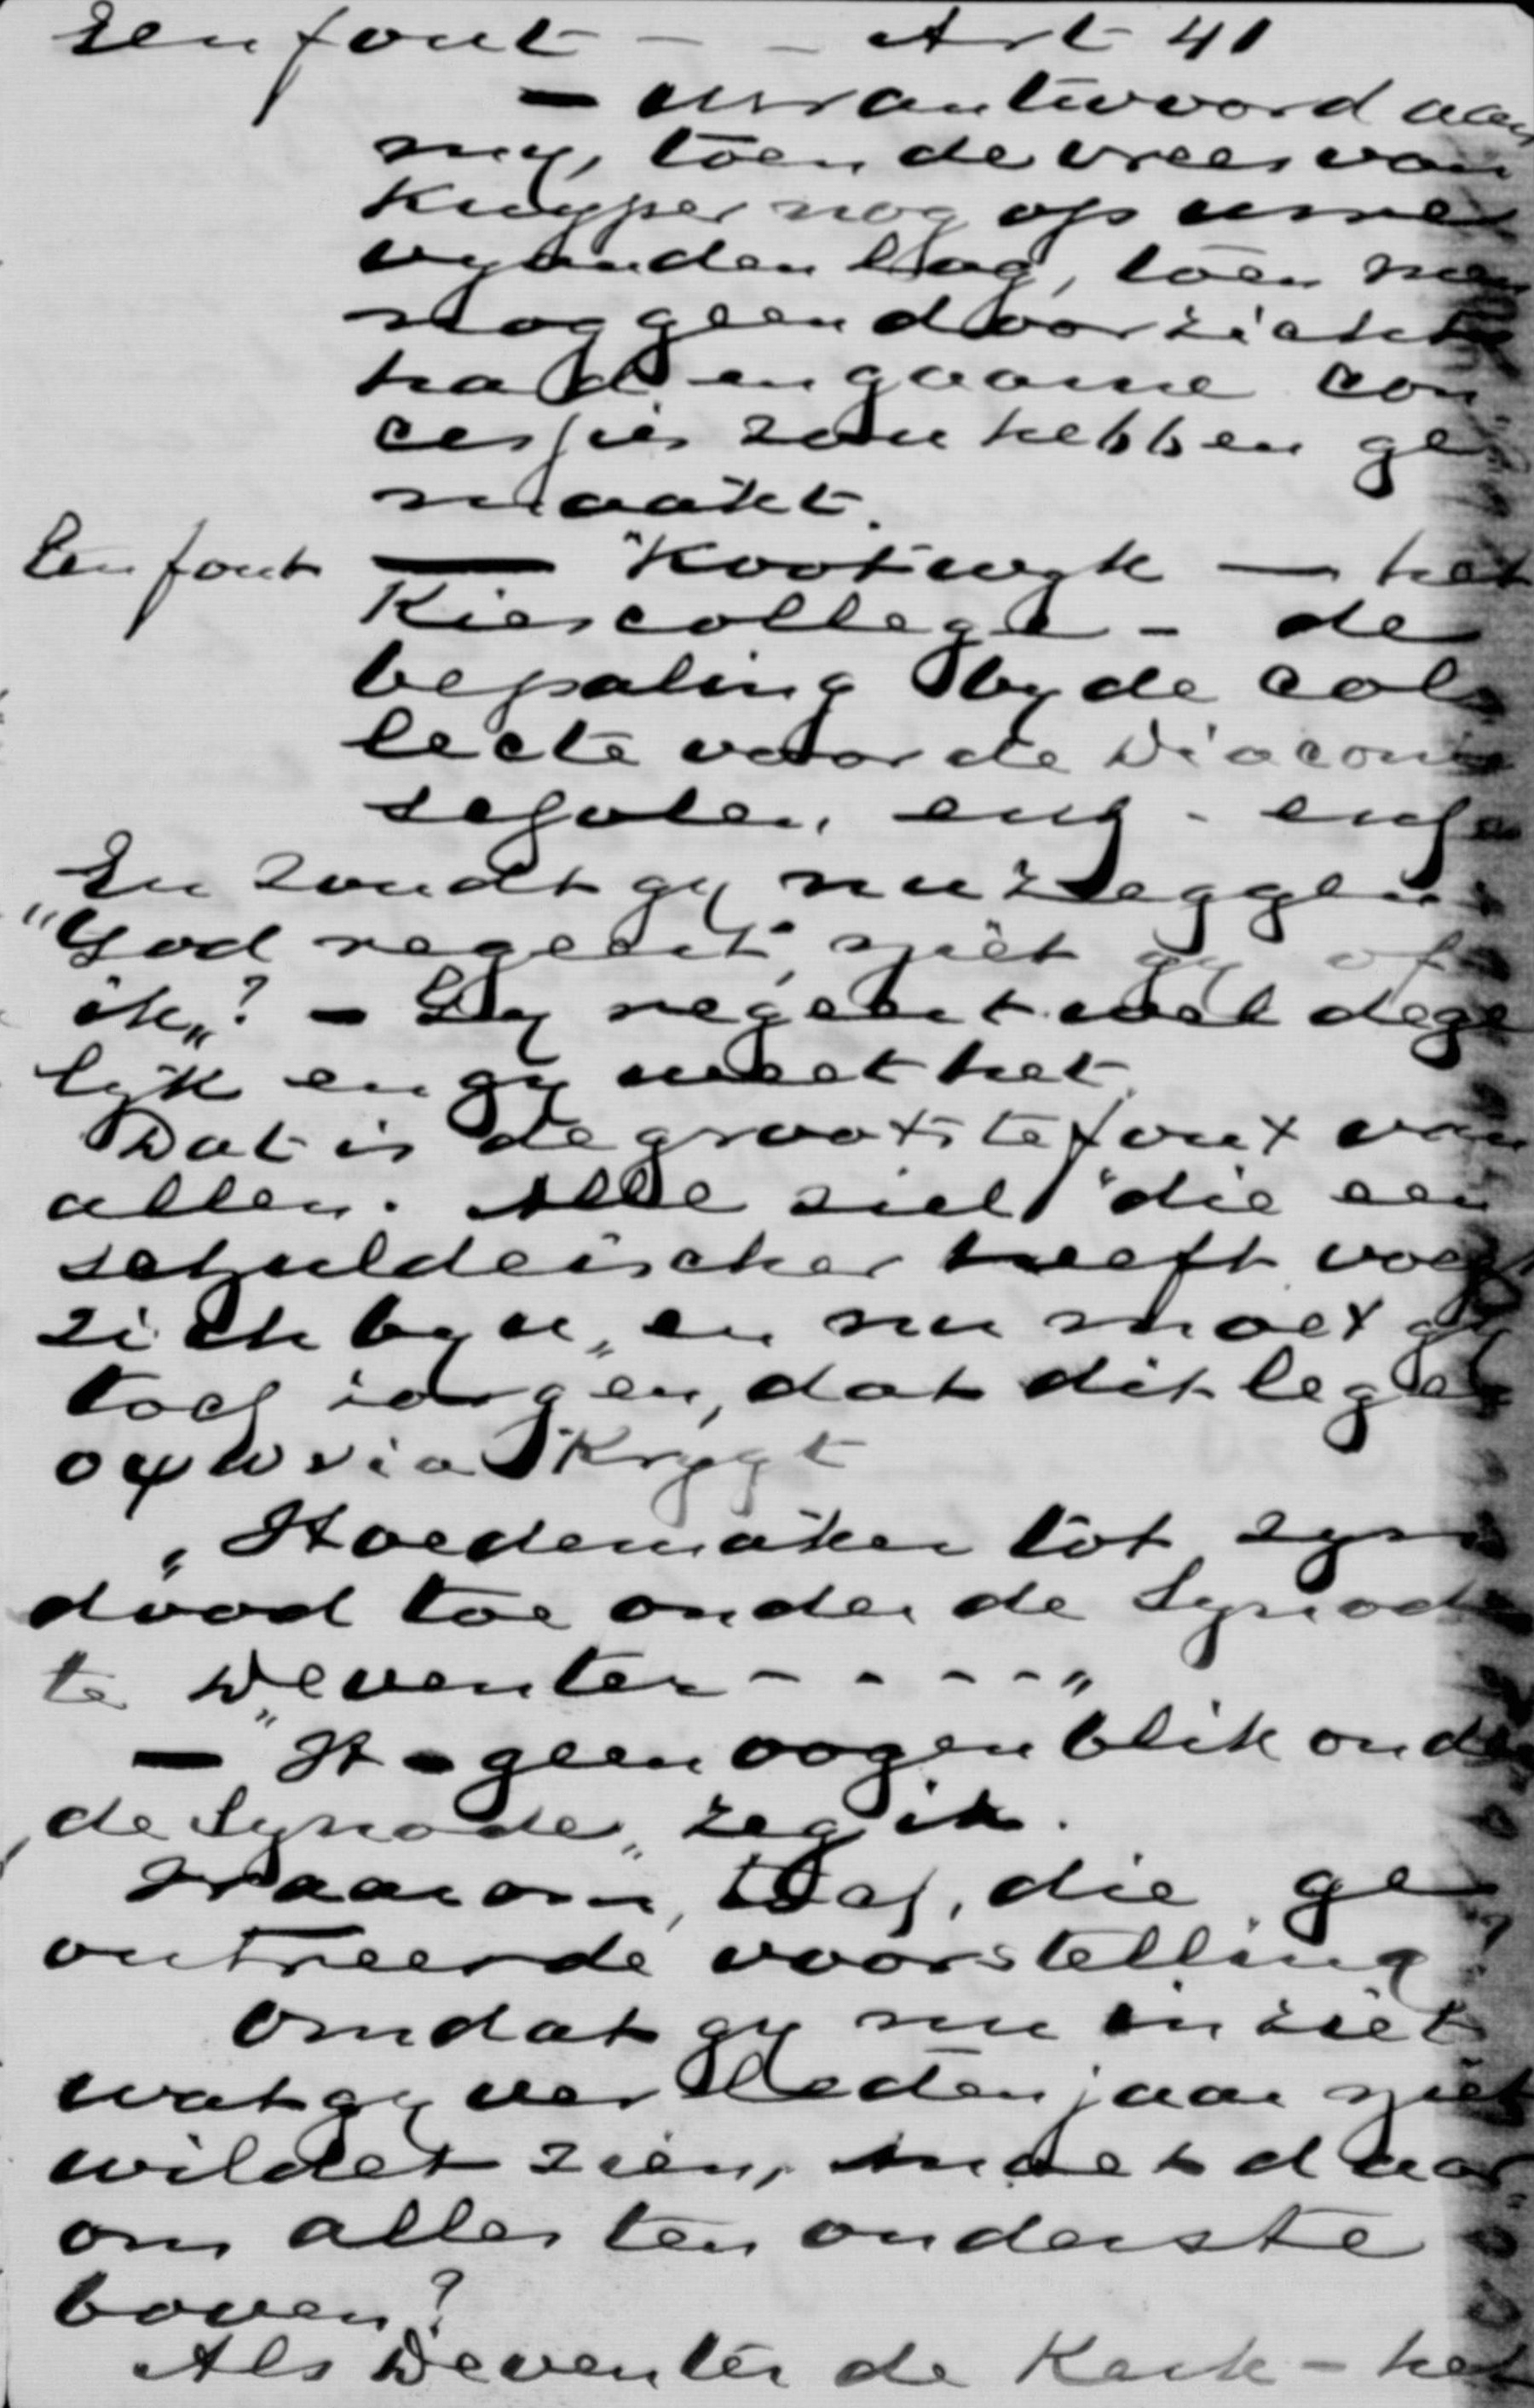 Een fout - - Art 41
- Uw antwoord aan
my, toen de vrees van
Kuyper nog op uwe
vyanden lag, toen men
nog geen doorzicht
had en gaarne con
cessies zou hebben ge
maakt.
Een fout — "Kootwyk — het
Kiescollege - de
bepaling by de col
lecte voor de Diaconie
scholen, enz. enz.
En zoudt gy nu zeggen
"God regeert, niet gy of
ik„? - Gy regeert wel dege
lyk en gy weet het.
Dat is de grootste fout van
allen. Alle ziel "die een
schuldeischer heeft voegt
zich by u„ en nu moet gy
toch zorgen, dat dit leger
οψωνια krygt
„Hoedemaker tot zyn
dood toe onder de Synode
te Deventer - - - - -"
- "H - geen oogenblik onder
de Synode„ zeg ik.
Waarom, toch, die ge
outreerde voorstelling?
Omdat gy nu inziet
wat gy verleden jaar niet
wildet zien, moet daar
om alles ten onderste
boven?
Als Deventer de Kerk - het